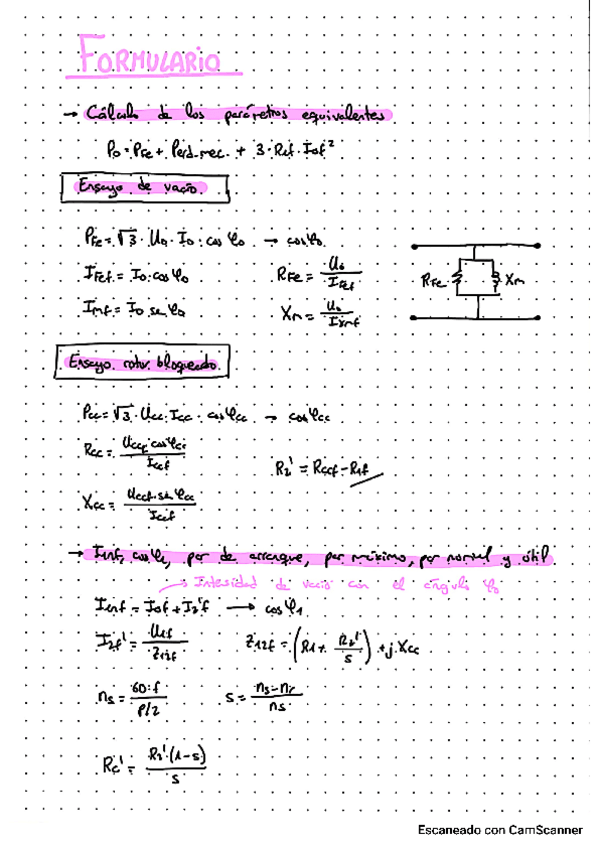 FORMULARIO
→ Cálculo de los parámetros equivalentes
P0 = PFe + Perd.mec. + 3·R1f·I0f²
Ensayo de vacío.
PFe = √3·U0·I0·cosφ0 → cosφ0
IFef = I0·cosφ0 RFe = U0/IFef
Imf = I0 senφ0 Xm = U0/Ixmf
RFe Xm
Ensayo rotor bloqueado.
Pcc = √3·Ucc·Icc·cosφcc → cosφcc
Rcc = Uccf·cosφcc/Iccf
R2' = Rccf - R1f
Xcc = Uccf·senφcc/Iccf
→ I1nf, cosφ1, par de arranque, par máximo, par normal y útil
→ Intensidad de vacío con el ángulo φ0
I1nf = I0f + I2'f → cosφ1
I2f' = U1f/Z12f Z12f = (R1 + R2'/s) + j·Xcc
ns = 60·f/P/2 s = ns-nr/ns
Rc' = R2'·(1-s)/s
Escaneado con CamScanner